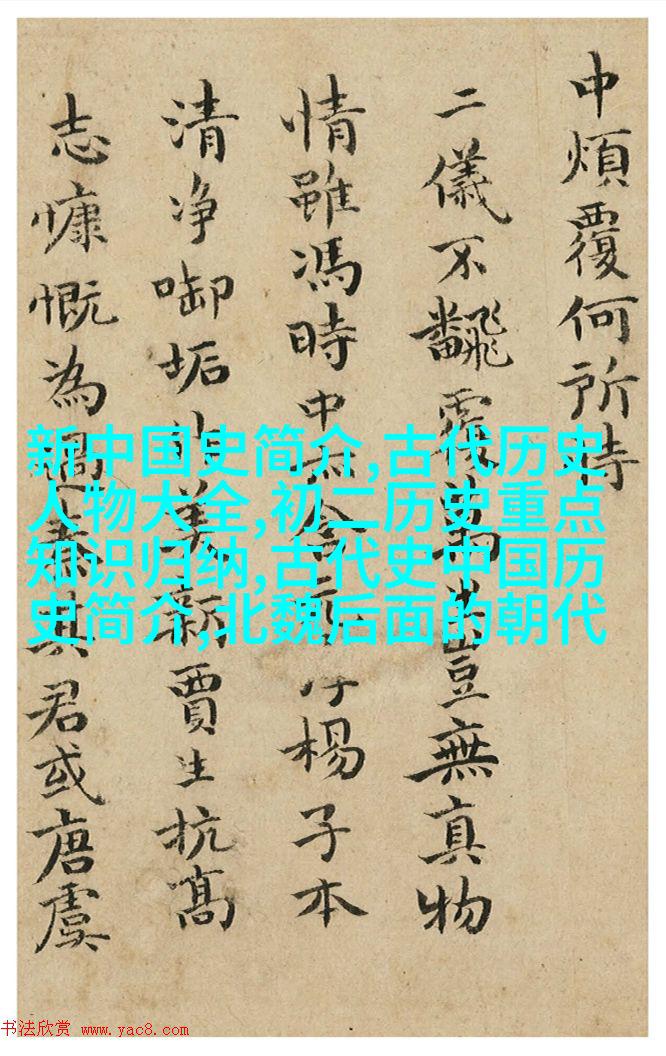 中煩覆何所待
二儀不飜覆萬豈無真物
情雖馮時中楊子本
清净啣垢美新賈生抗髙
志慷慨為秦其君或唐虞
新中国史简介,古代历史
人物大全,初二历史重点
知识归纳,古代史中国历
史简介,北魏后面的朝代
书法欣赏 www.yac8.com